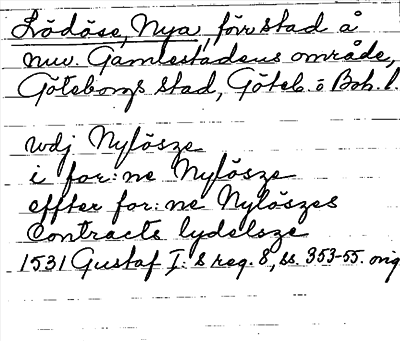 Lödöse, Nya, förstad å
nuv. Gamlestadens område,
Göteborgs stad, Göteb. o Boh. l.
wdj Nylösze
i for:ne Nylösze
effter for:ne Nylöszes
Contracts lydelsze
1531 Gustaf I:s reg. 8, ss. 353-55. orig